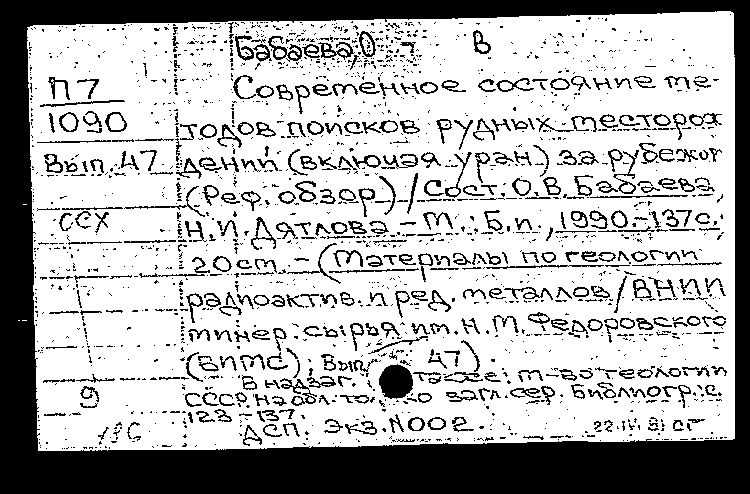 Бабаева, О - В
П7
1090
Вып. 47
ССХ
9
196
Современное состояние ме-
тодов поисков рудных месторож
дений (включая уран) за рубежом
(Реф. обзор) / Сост. О.В. Бабаева,
Н.И. Дятлова. - М.: Б.и., 1990. - 137с.
20см. - (Материалы по геологии
радиоактив. и ред. металлов / ВНИИ
минер. сырья им. Н.М. Федоровского
(ВИМС); Вып. 47).
В надзаг. также: М-во геологии
СССР. На обл. только загл. сер. Библиогр.: с.
123-137.
ДСП. Экз. N 002.
22 IV 91